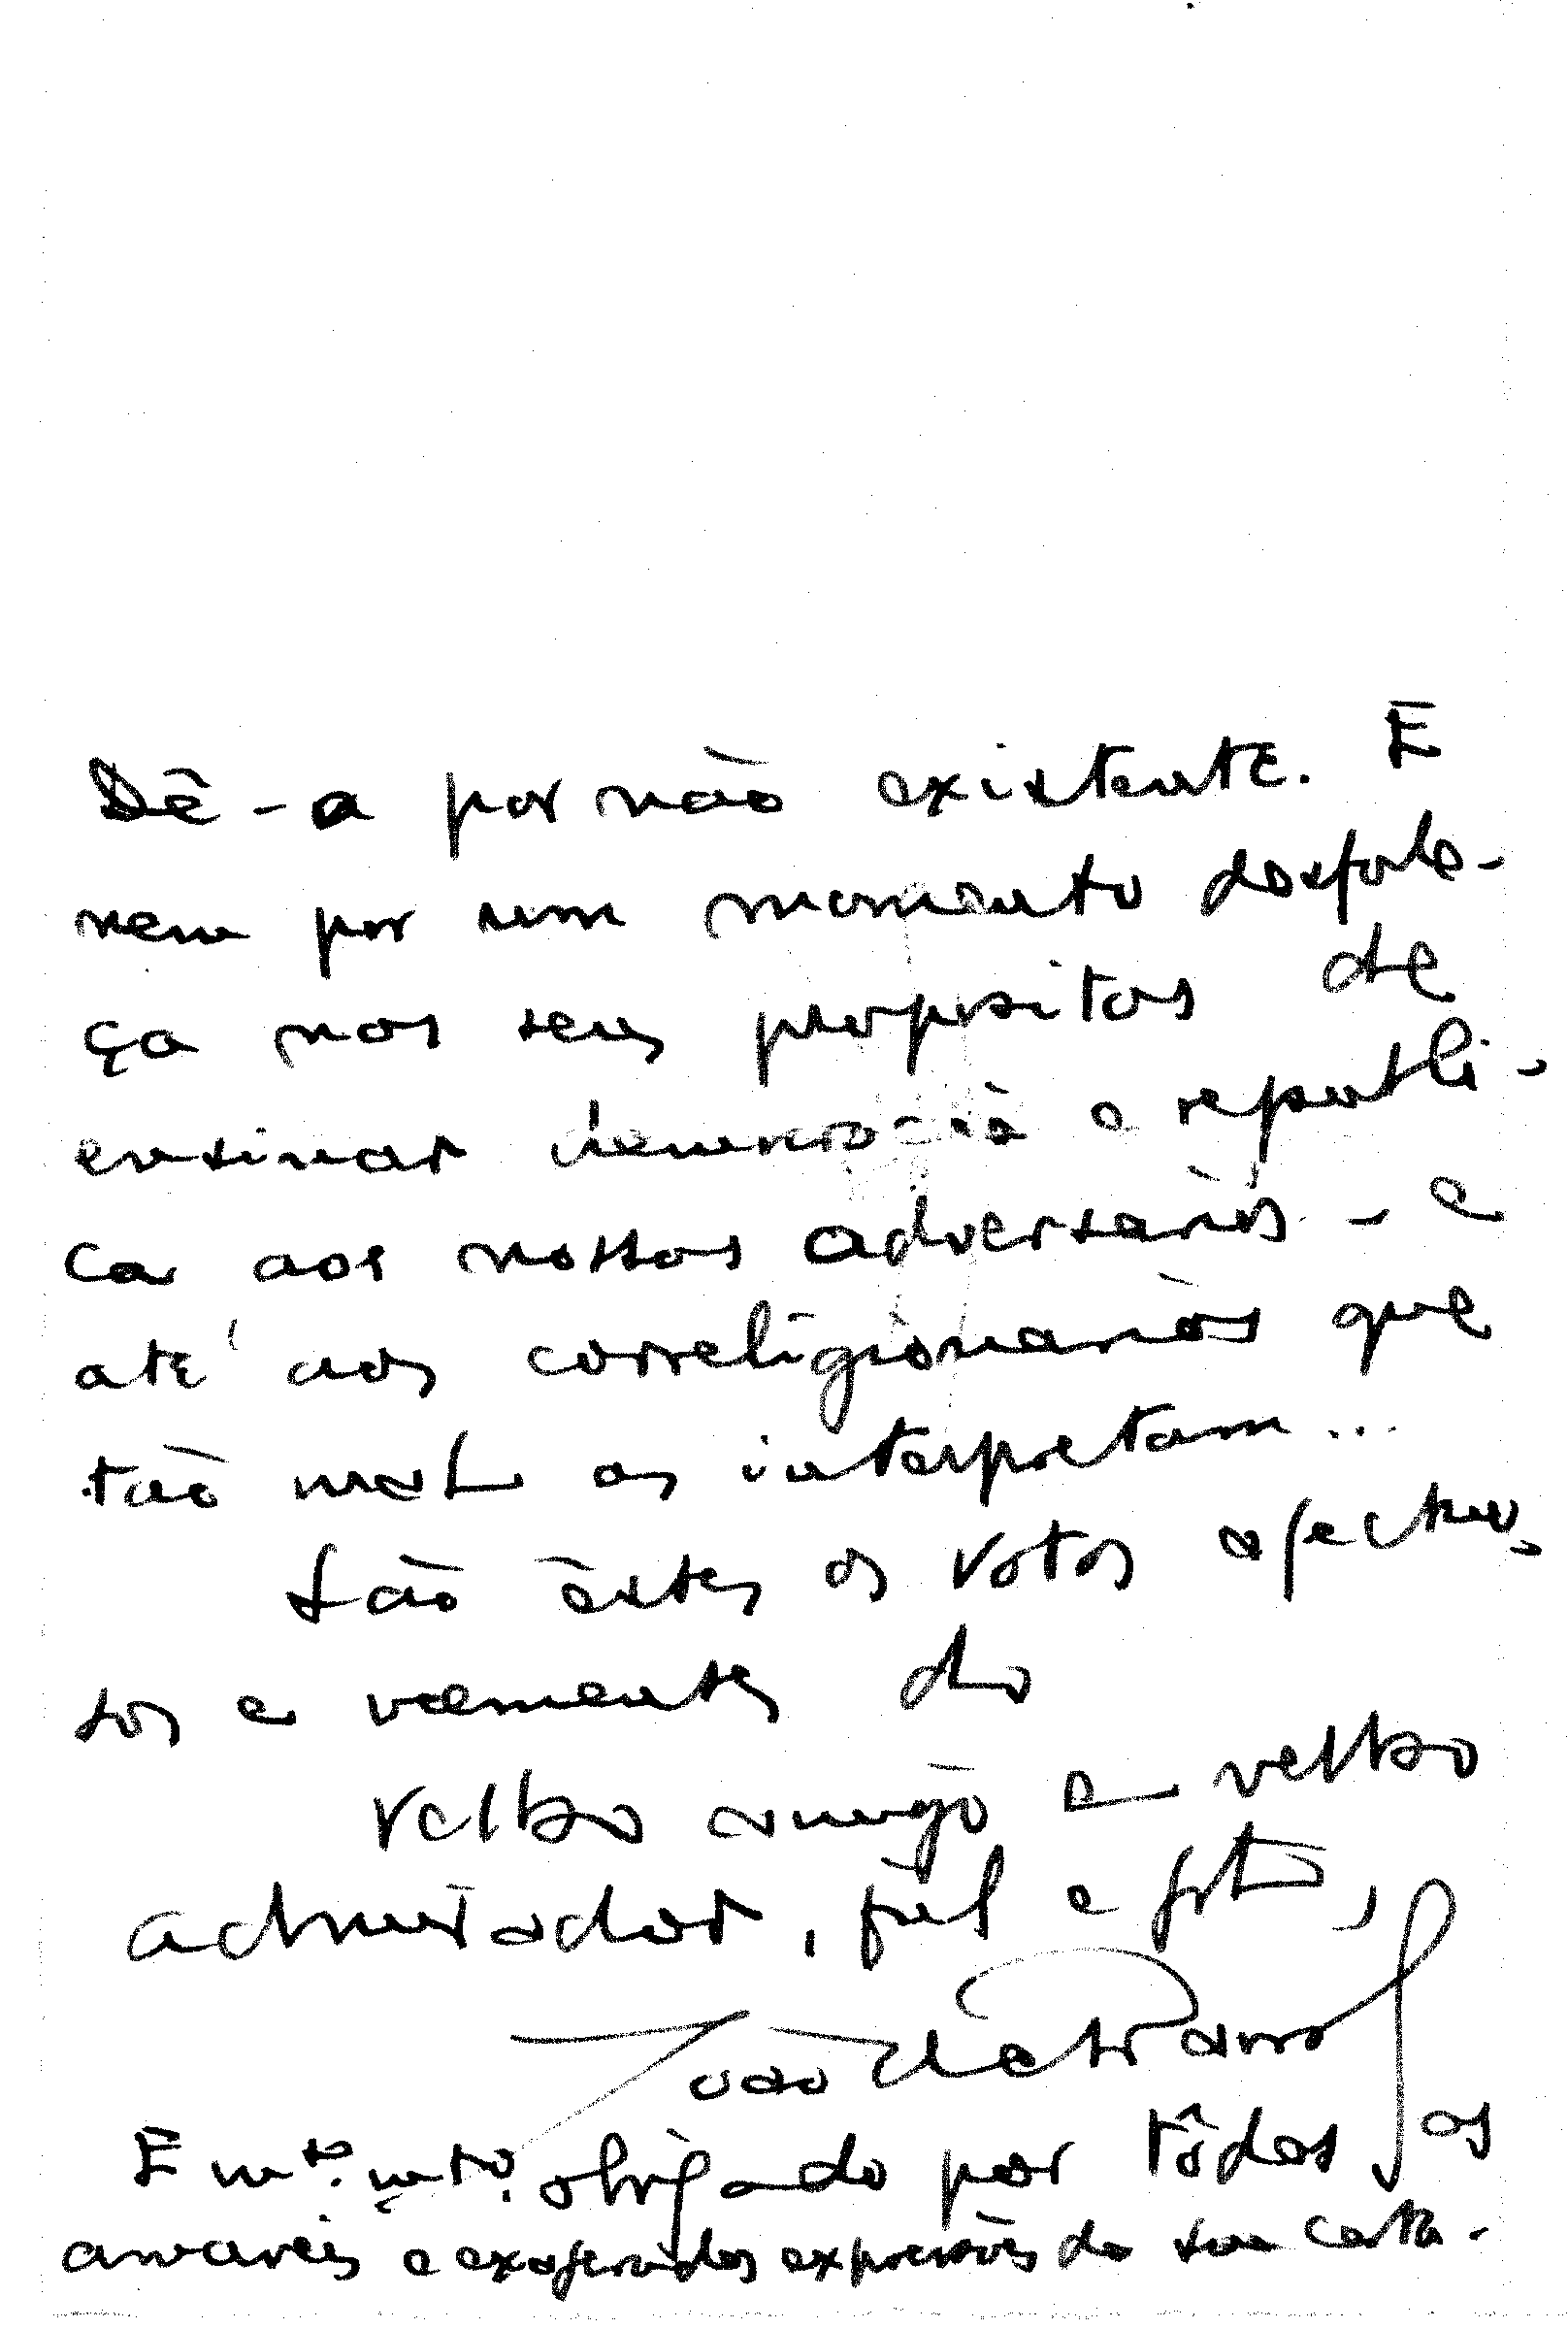 Dê-a por não existente. E
nem por um momento desfale-
ça nos seus propositos de
ensinar democracia e republi-
ca aos nossos adversarios - e
até aos correligionarios que
tão mal os interpretam...
São êstes os votos afectuo-
sos e veementes do
velho amigo e velho
admirador, fiel e grato,
João de Barros
E mto. mto. obrigado por tôdas as
amaveis e exageradas expressões da sua carta.